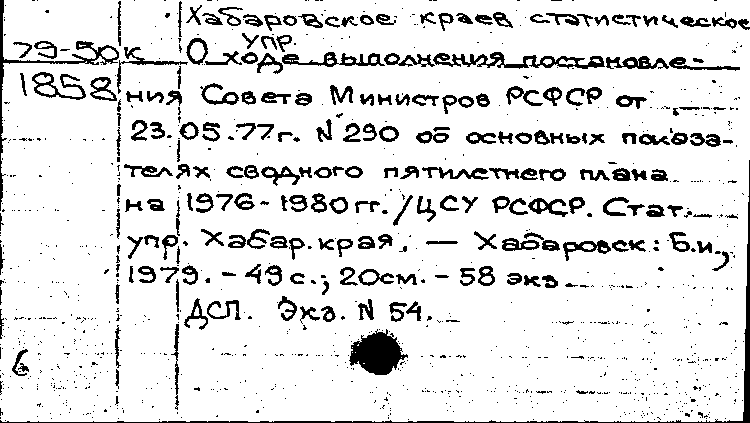 Хабаровское краев статистическое
упр.
79-50к О ходе выполнения постановле-
1858 ния Совета Министров РСФСР от
23.05.77г. N 290 об основных показа-
телях сводного пятилетнего плана
на 1976-1980гг. /ЦСУ РСФСР. Стат.
упр. Хабар. края. — Хабаровск: Б.и.,
1979. - 49 с.; 20см. - 58 экз.
ДСП. Экз. N 54.
6